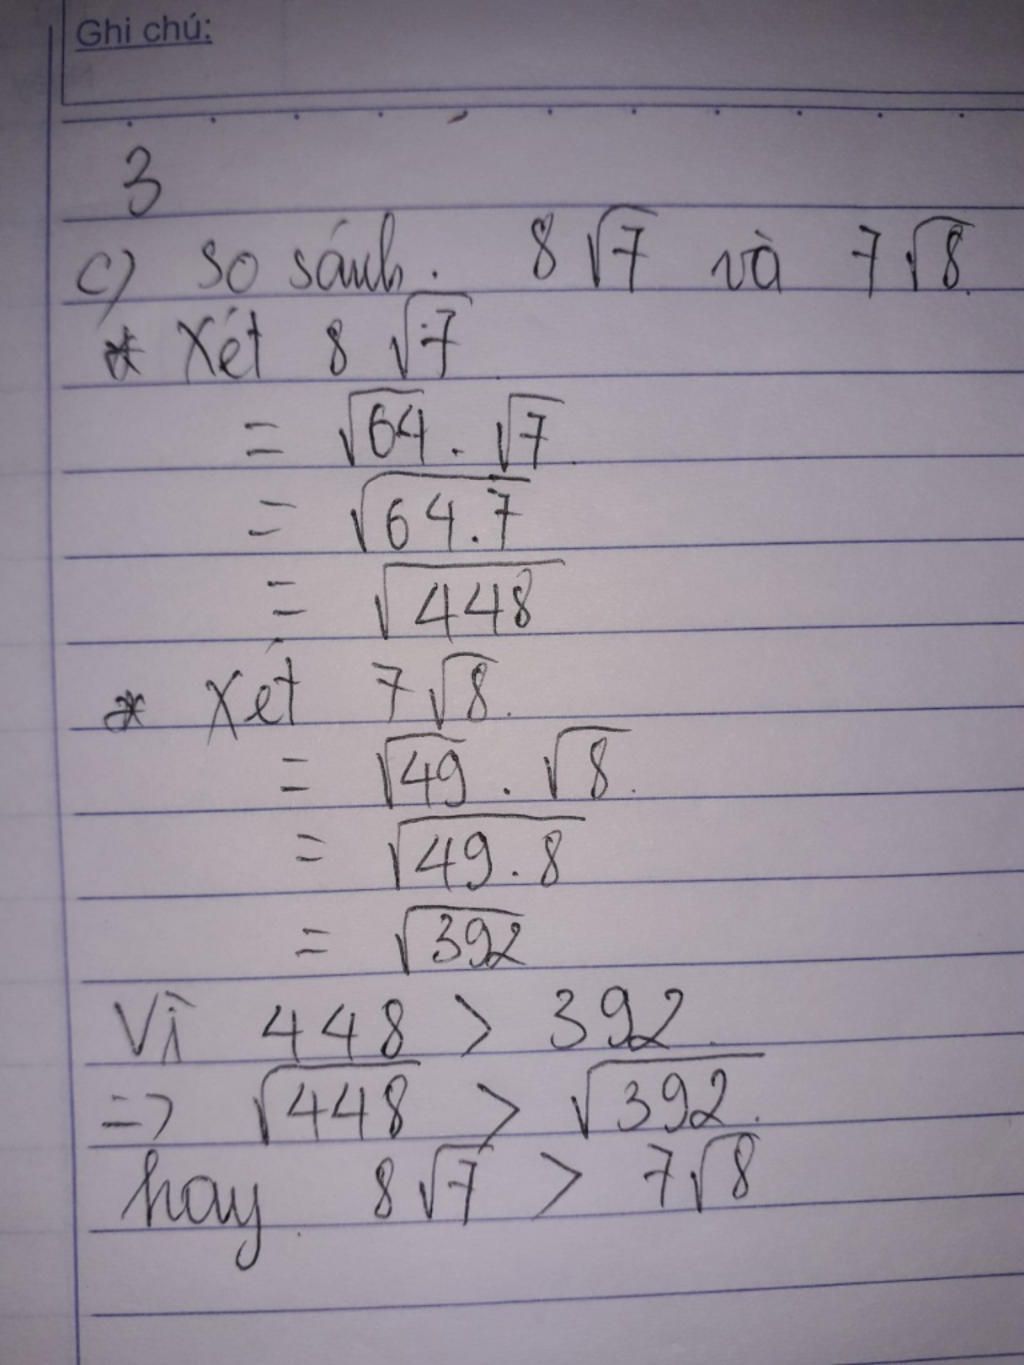 Ghi chú:
3
c) so sánh. 8√7 và 7√8.
* Xét 8 √7
= √64 . √7
= √64.7
= √448
* Xét 7√8.
= √49 . √8.
= √49.8
= √392
Vì 448 > 392.
=> √448 > √392.
hay 8√7 > 7√8